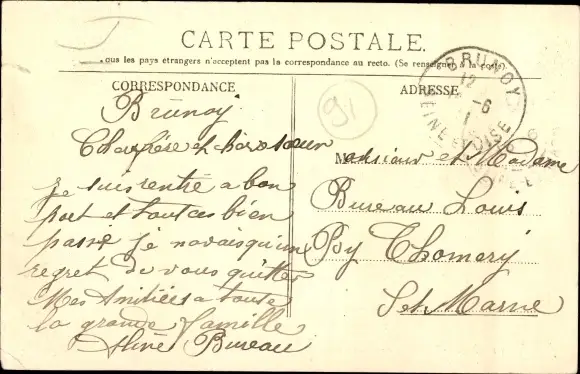 CARTE POSTALE.
ous les pays étrangers n'acceptent pas la correspondance au recto. (Se renseigner à la poste).
CORRESPONDANCE
Brunoy
Cher frère et chère sœur
je suis rentré a bon
port et tout ces bien
passé je navais qu'un
regret de vous quitter
Mes Amitiées a toute
la grande famille
Bureau
ADRESSE
Monsieur et Madame
Bureau Louis
By Thomery
S et Marne
91
BRUNOY
12
6
SEINE ET OISE